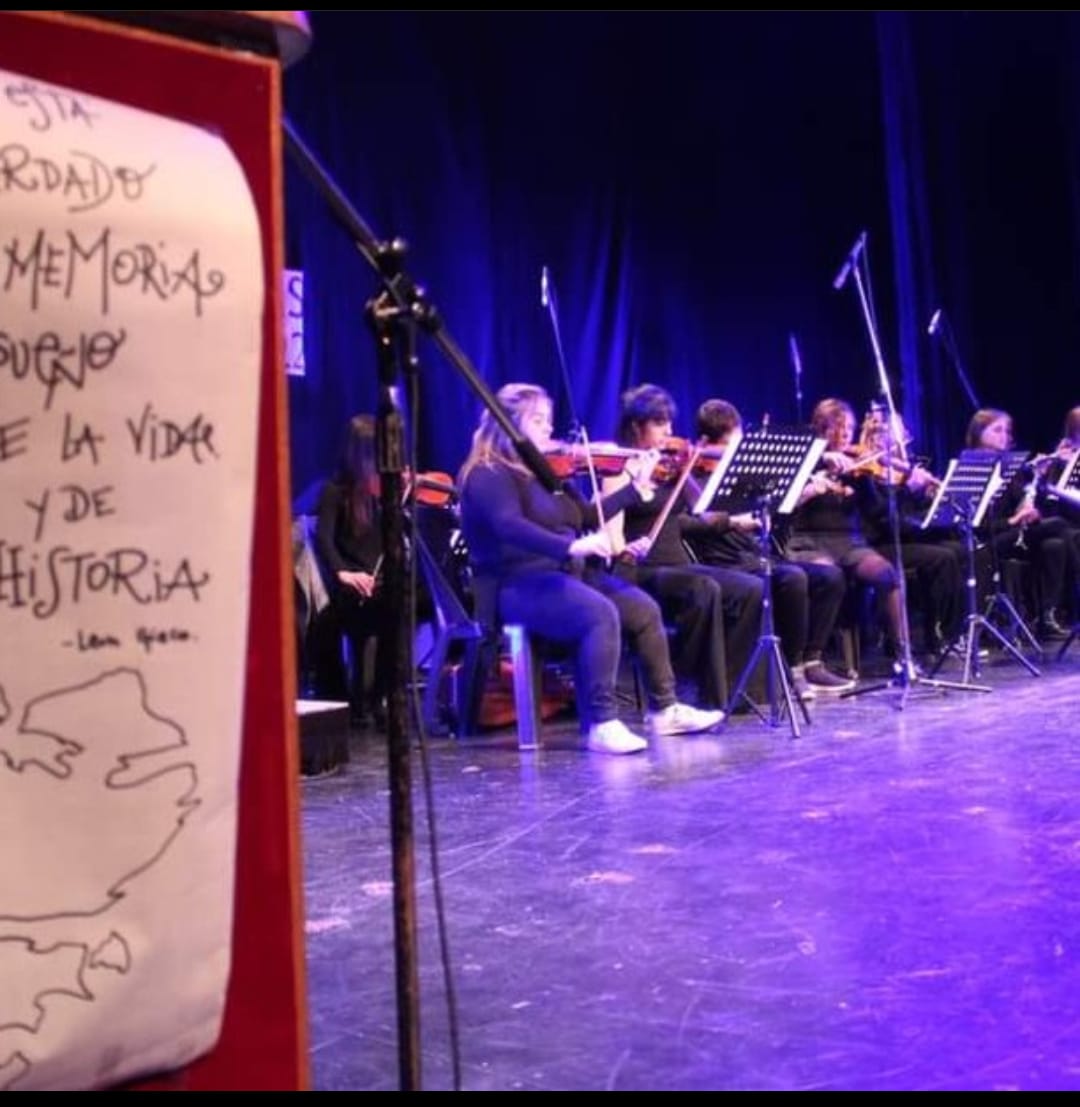 ESTA
RDADO
MEMORiA
SUEÑO
E LA ViDA
Y DE
HiSTORiA
- León Gieco.
S